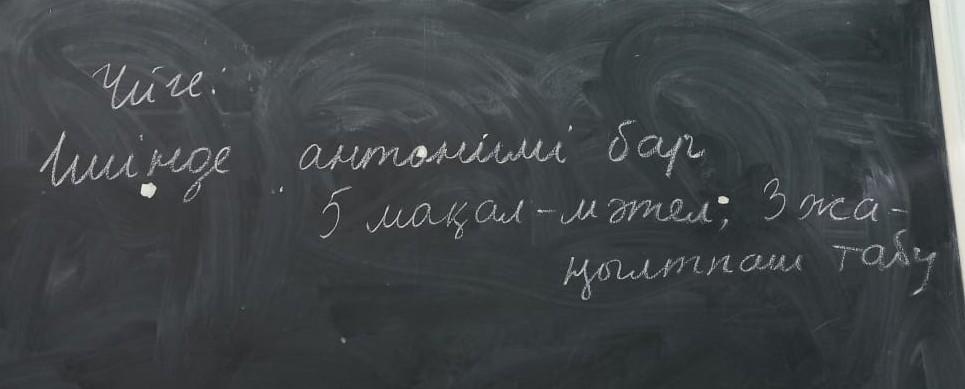 Үйге:
Ішінде антонимі бар
5 мақал-мәтел; 3 жа-
ңылтпаш табу